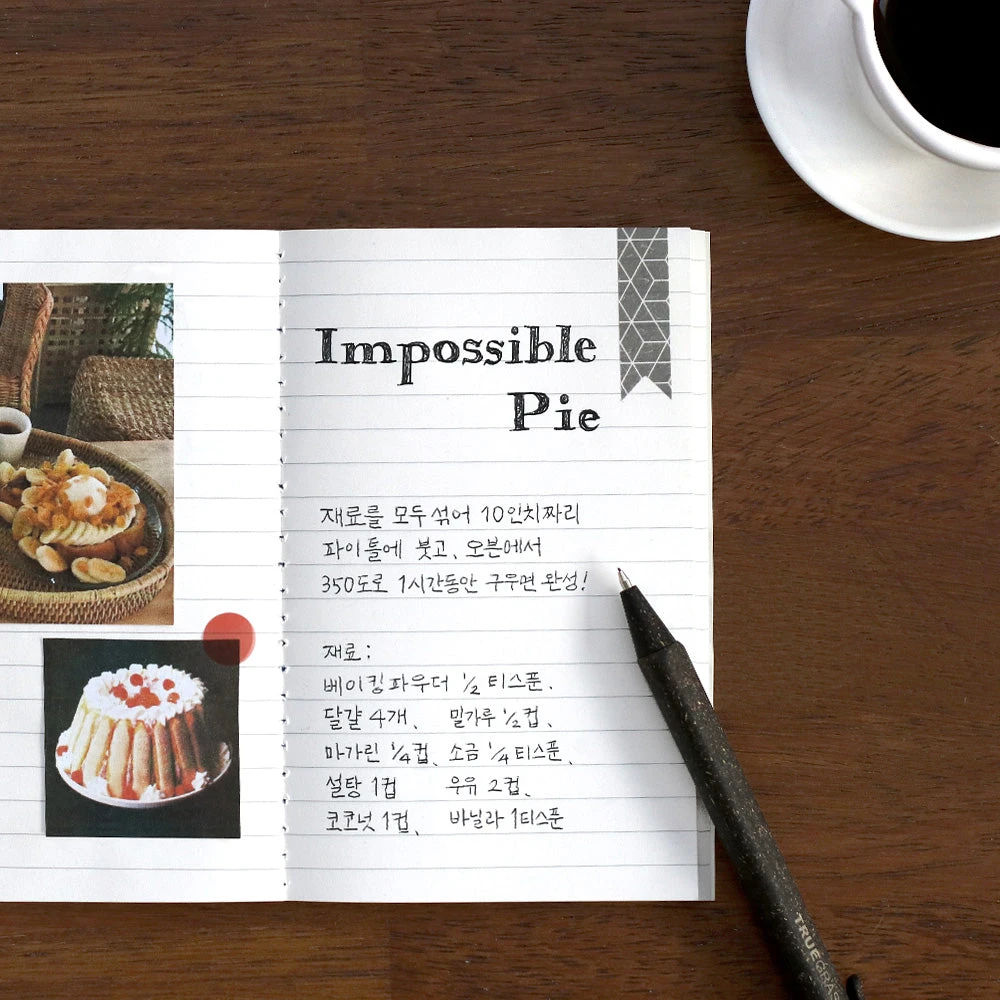 Impossible
Pie
재료를 모두 섞어 10인치짜리
파이틀에 붓고, 오븐에서
350도로 1시간동안 구우면 완성!
재료:
베이킹파우더 ½ 티스푼.
달걀 4개, 밀가루 ½컵,
마가린 ¼컵, 소금 ¼티스푼,
설탕 1컵 우유 2컵,
코코넛 1컵, 바닐라 1티스푼
TRUEGRA